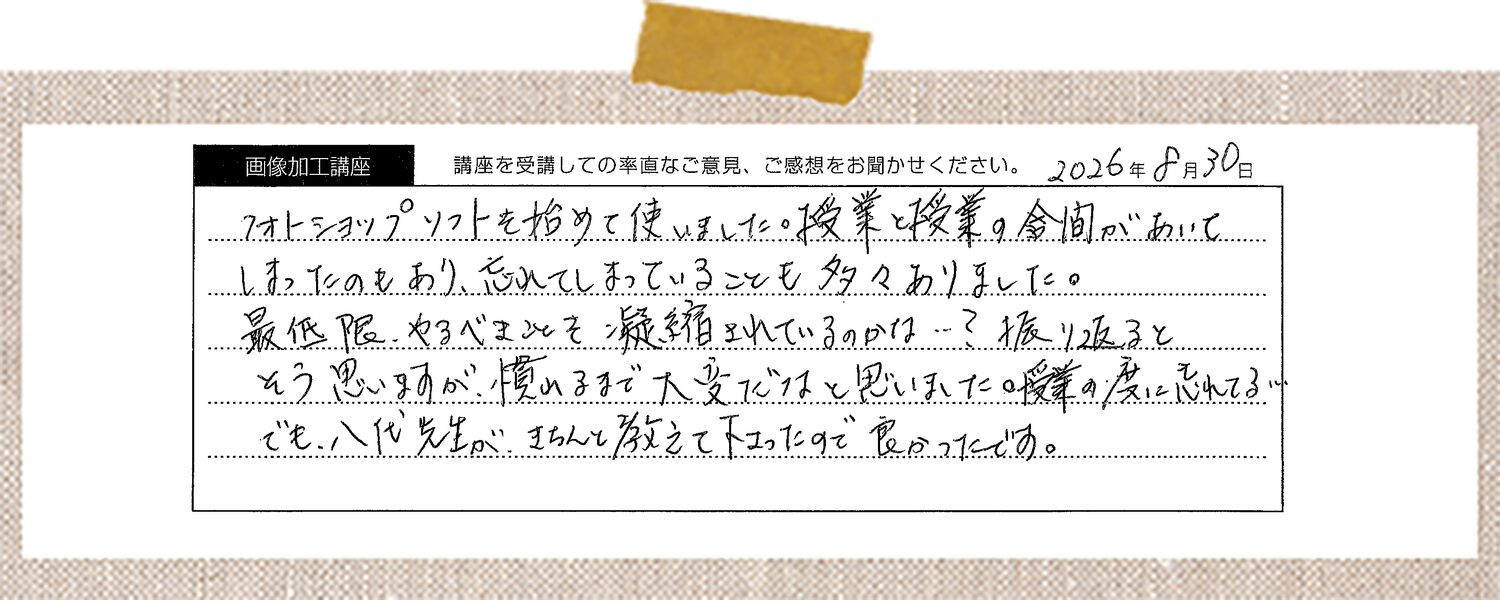 画像加工講座
講座を受講しての率直なご意見、ご感想をお聞かせください。 2026年8月30日
フォトショップソフトを始めて使いました。授業と授業の合間があいて
しまったのもあり、忘れてしまっていることも多々ありました。
最低限、やるべきことを凝縮されているのかな…?振り返ると
そう思いますが、慣れるまで大変だなと思いました。授業の度に忘れてる…
でも、八代先生が、きちんと教えて下さったので良かったです。